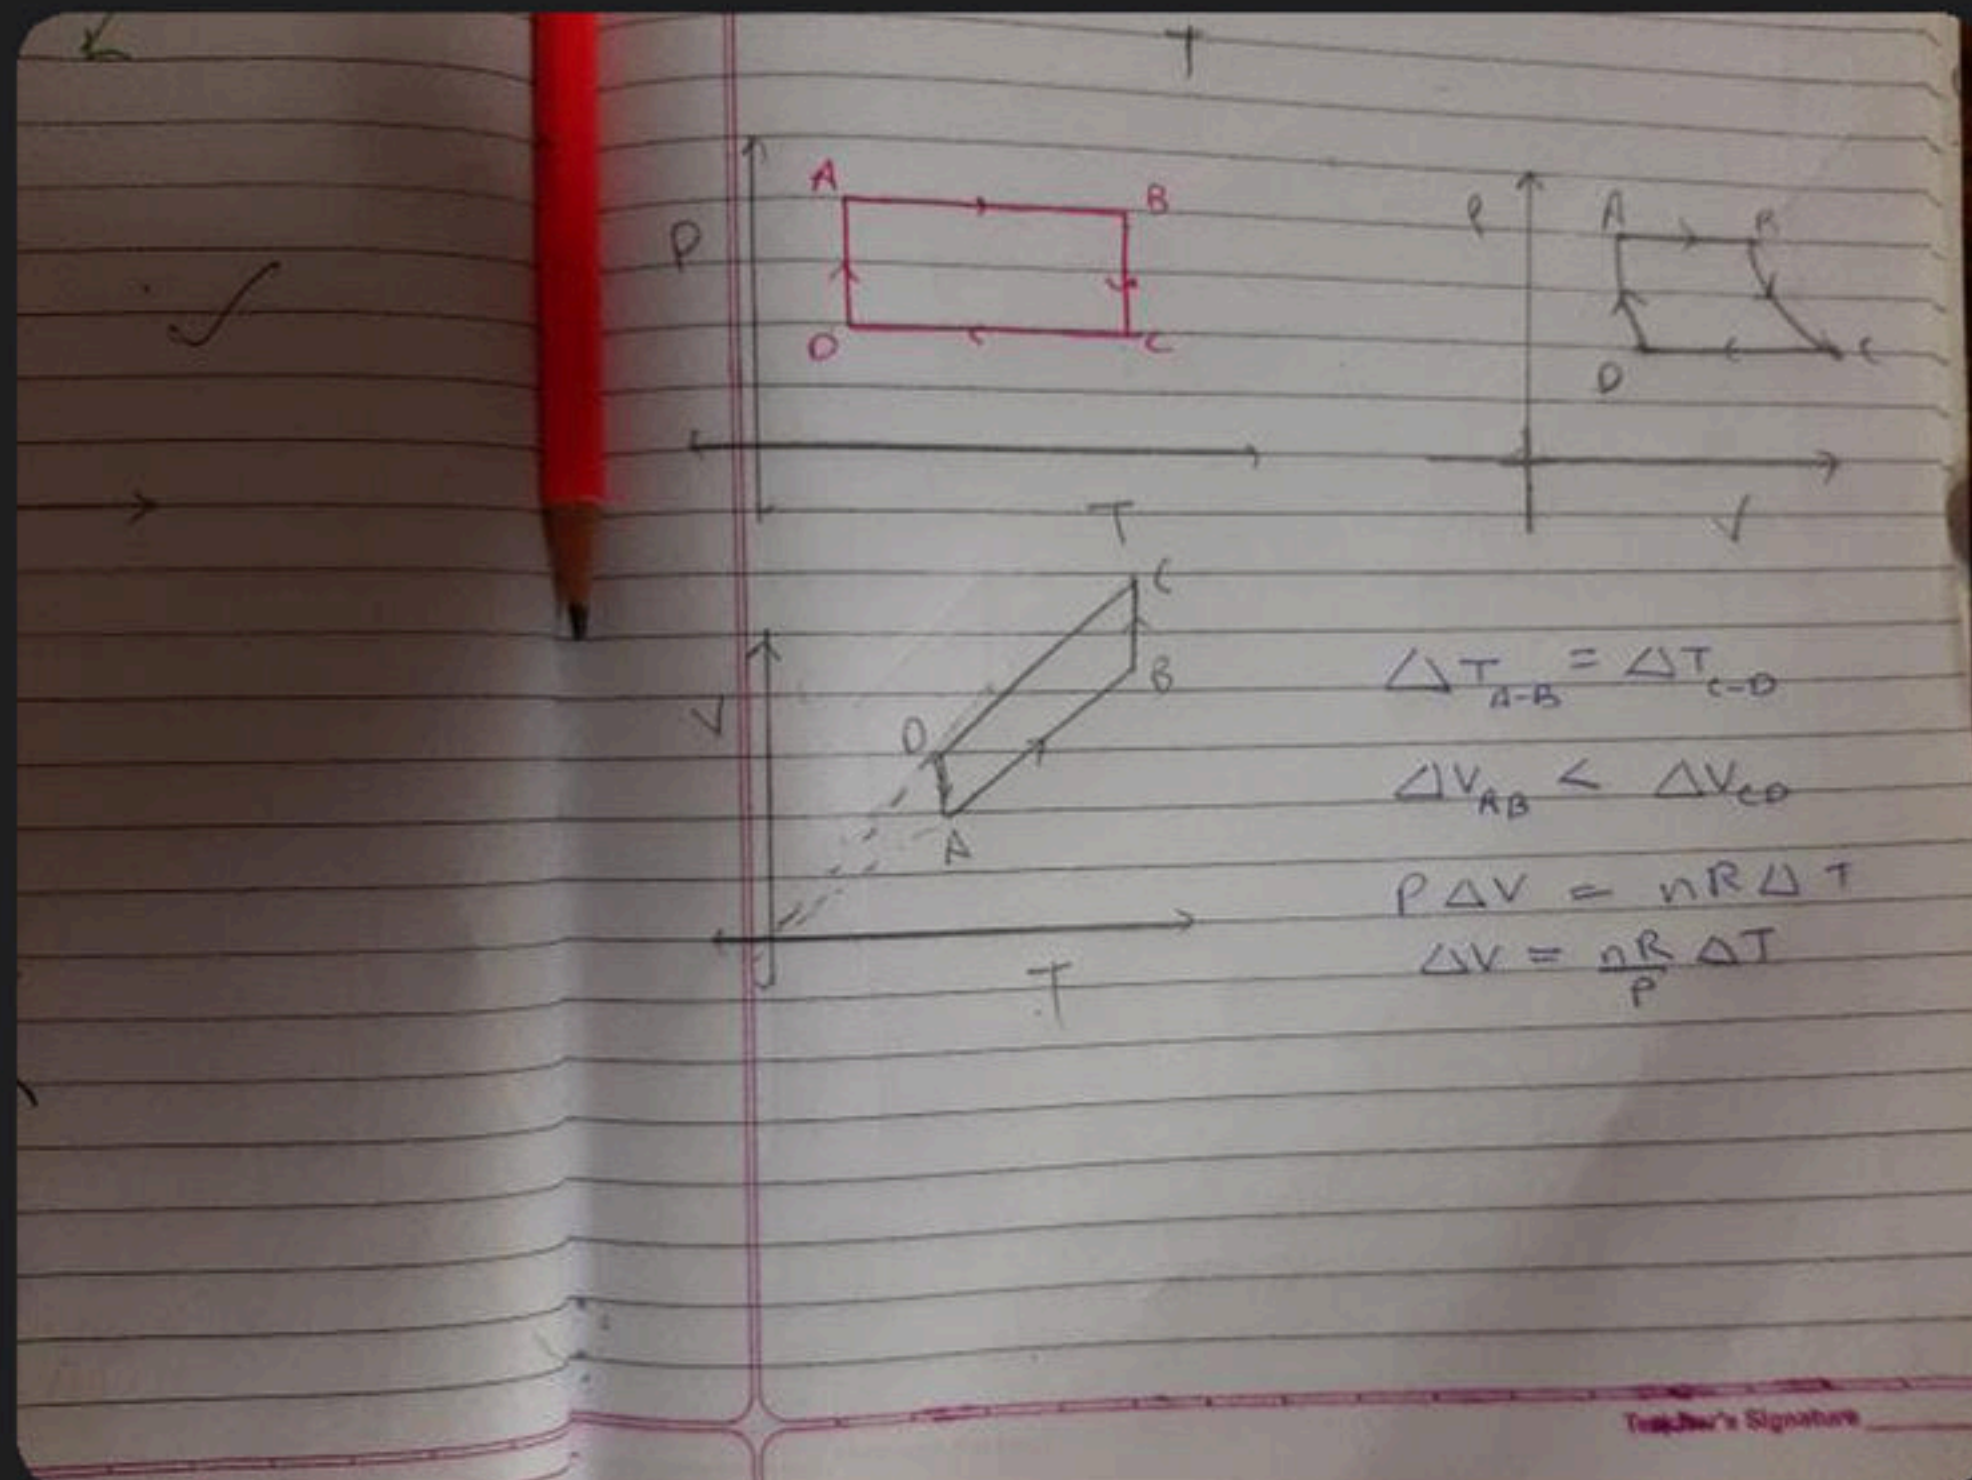 T
P
A
B
D
C
T
P
A
B
D
C
V
V
C
B
D
A
T
ΔT_A-B = ΔT_C-D
ΔV_AB < ΔV_CD
PΔV = nRΔT
ΔV = nR/P ΔT
Teacher's Signature